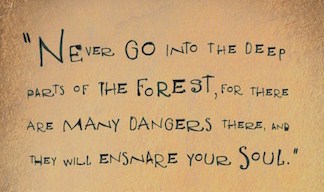 "NEVER GO INTO THE DEEP
PARTS OF THE FOREST, FOR THERE
ARE MANY DANGERS THERE, AND
THEY WILL ENSNARE YOUR SOUL."